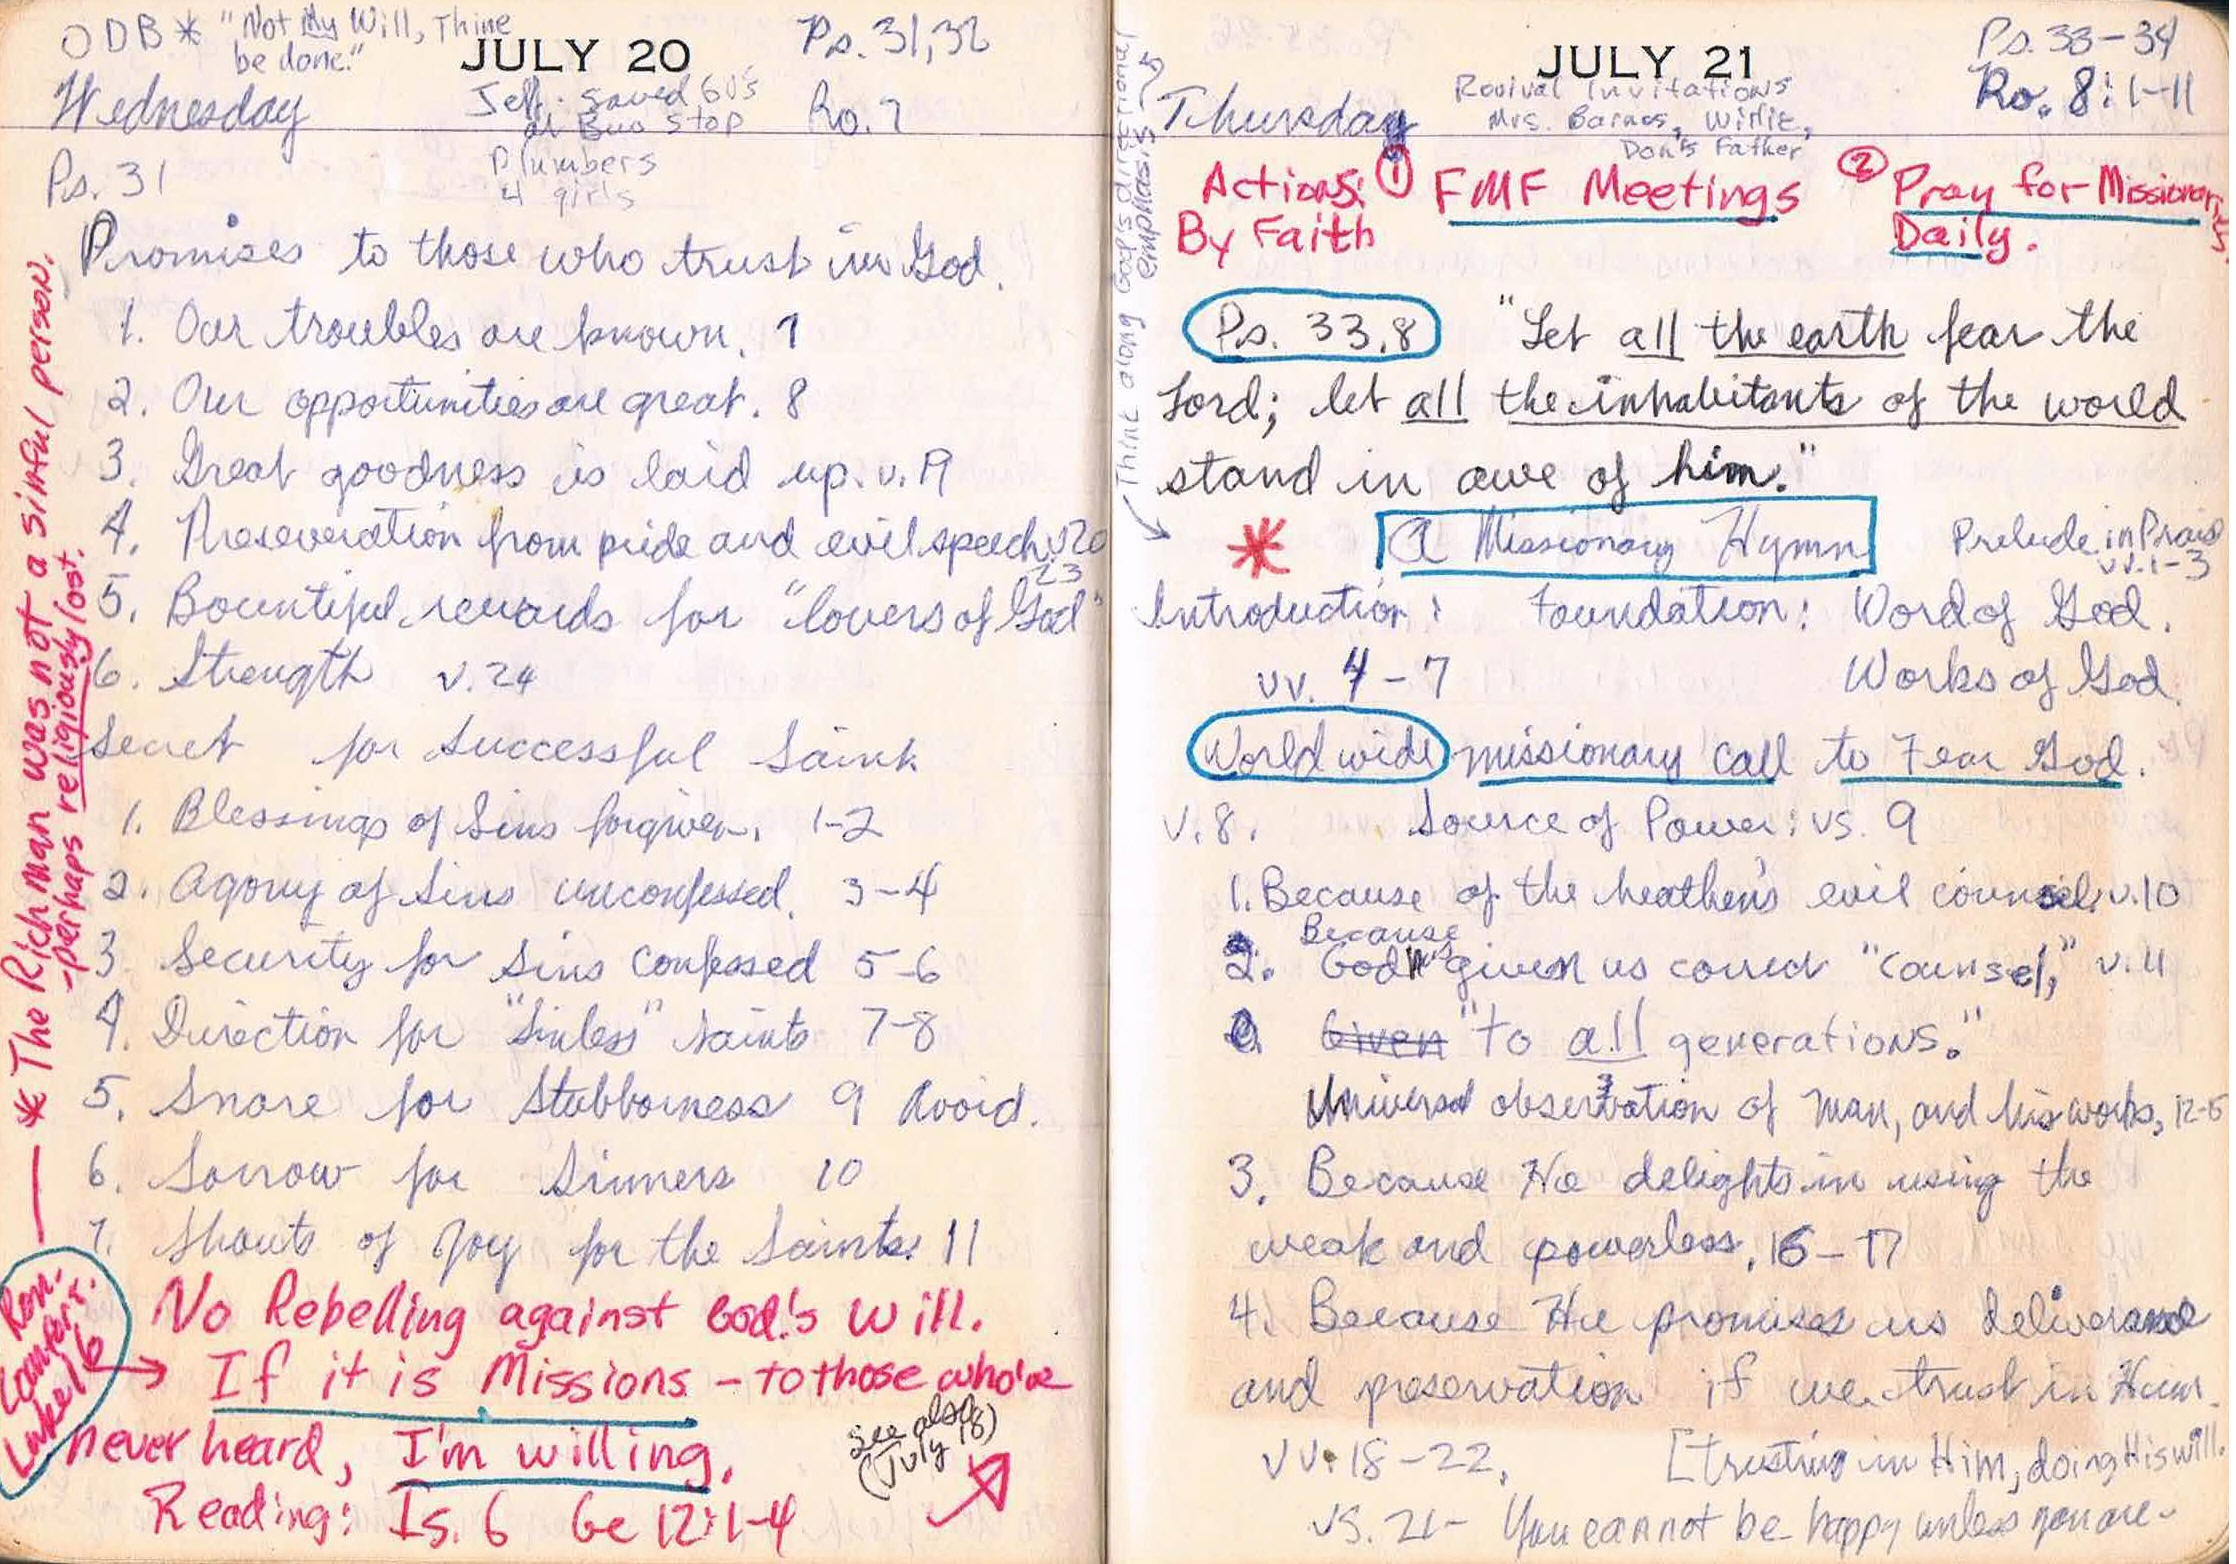 ODB * "Not My Will, Thine
be done."
JULY 20
Ps. 31, 32
Wednesday
Jeff. saved 60's
at Bus Stop
Ro. 7
Plumbers
4 girls
Ps. 31
Promises to those who trust in God.
1. Our troubles are known. 7
2. Our opportunities are great. 8
3. Great goodness is laid up. v. 19
4. Preseveration from pride and evil speech. v20
23
5. Bountiful rewards for "lovers of God"
6. Strength v. 24
Secret for Successful Saint
1. Blessings of Sins forgiven. 1-2
2. Agony of Sins unconfessed. 3-4
3. Security for Sins Confessed 5-6
4. Direction for "Sinless" Saints 7-8
5. Snare for Stubborness 9 Avoid.
6. Sorrow for Sinners 10
7. Shouts of Joy for the Saints. 11
No Rebelling against God's Will.
If it is Missions - to those who've
never heard, I'm willing.
see also
(July 18)
Reading: Is. 6 Ge 12:1-4
* The Rich Man was not a sinful person.
- perhaps religiously lost.
Ron.
Luke 16
JULY 21
Ps. 33-34
Thursday
Revival Invitations
Mrs. Barnes, Willie,
Don's Father
Ro. 8:1-11
Actions: ① FMF Meetings ② Pray for Missionaries
By Faith
Daily.
Think along God's directional
emphasis
Ps. 33.8 "Let all the earth fear the
Lord; let all the inhabitants of the world
stand in awe of him."
* A Missionary Hymn
Prelude in Praise
vv. 1-3
Introduction: Foundation: Word of God.
vv. 4-7 Works of God.
World wide missionary call to Fear God.
v. 8. Source of Power: vs. 9
1. Because of the heathen's evil counsel. v. 10
Because
2. God has given us correct "counsel," v. 11
Given "to all generations."
Universal observation of man, and his works, 12-15
3. Because He delights in using the
weak and powerless. 16-17
4. Because He promises us deliverance
and preservation if we trust in Him.
vv. 18-22. [trusting in Him, doing His will.
vs. 21- You cannot be happy unless you are-